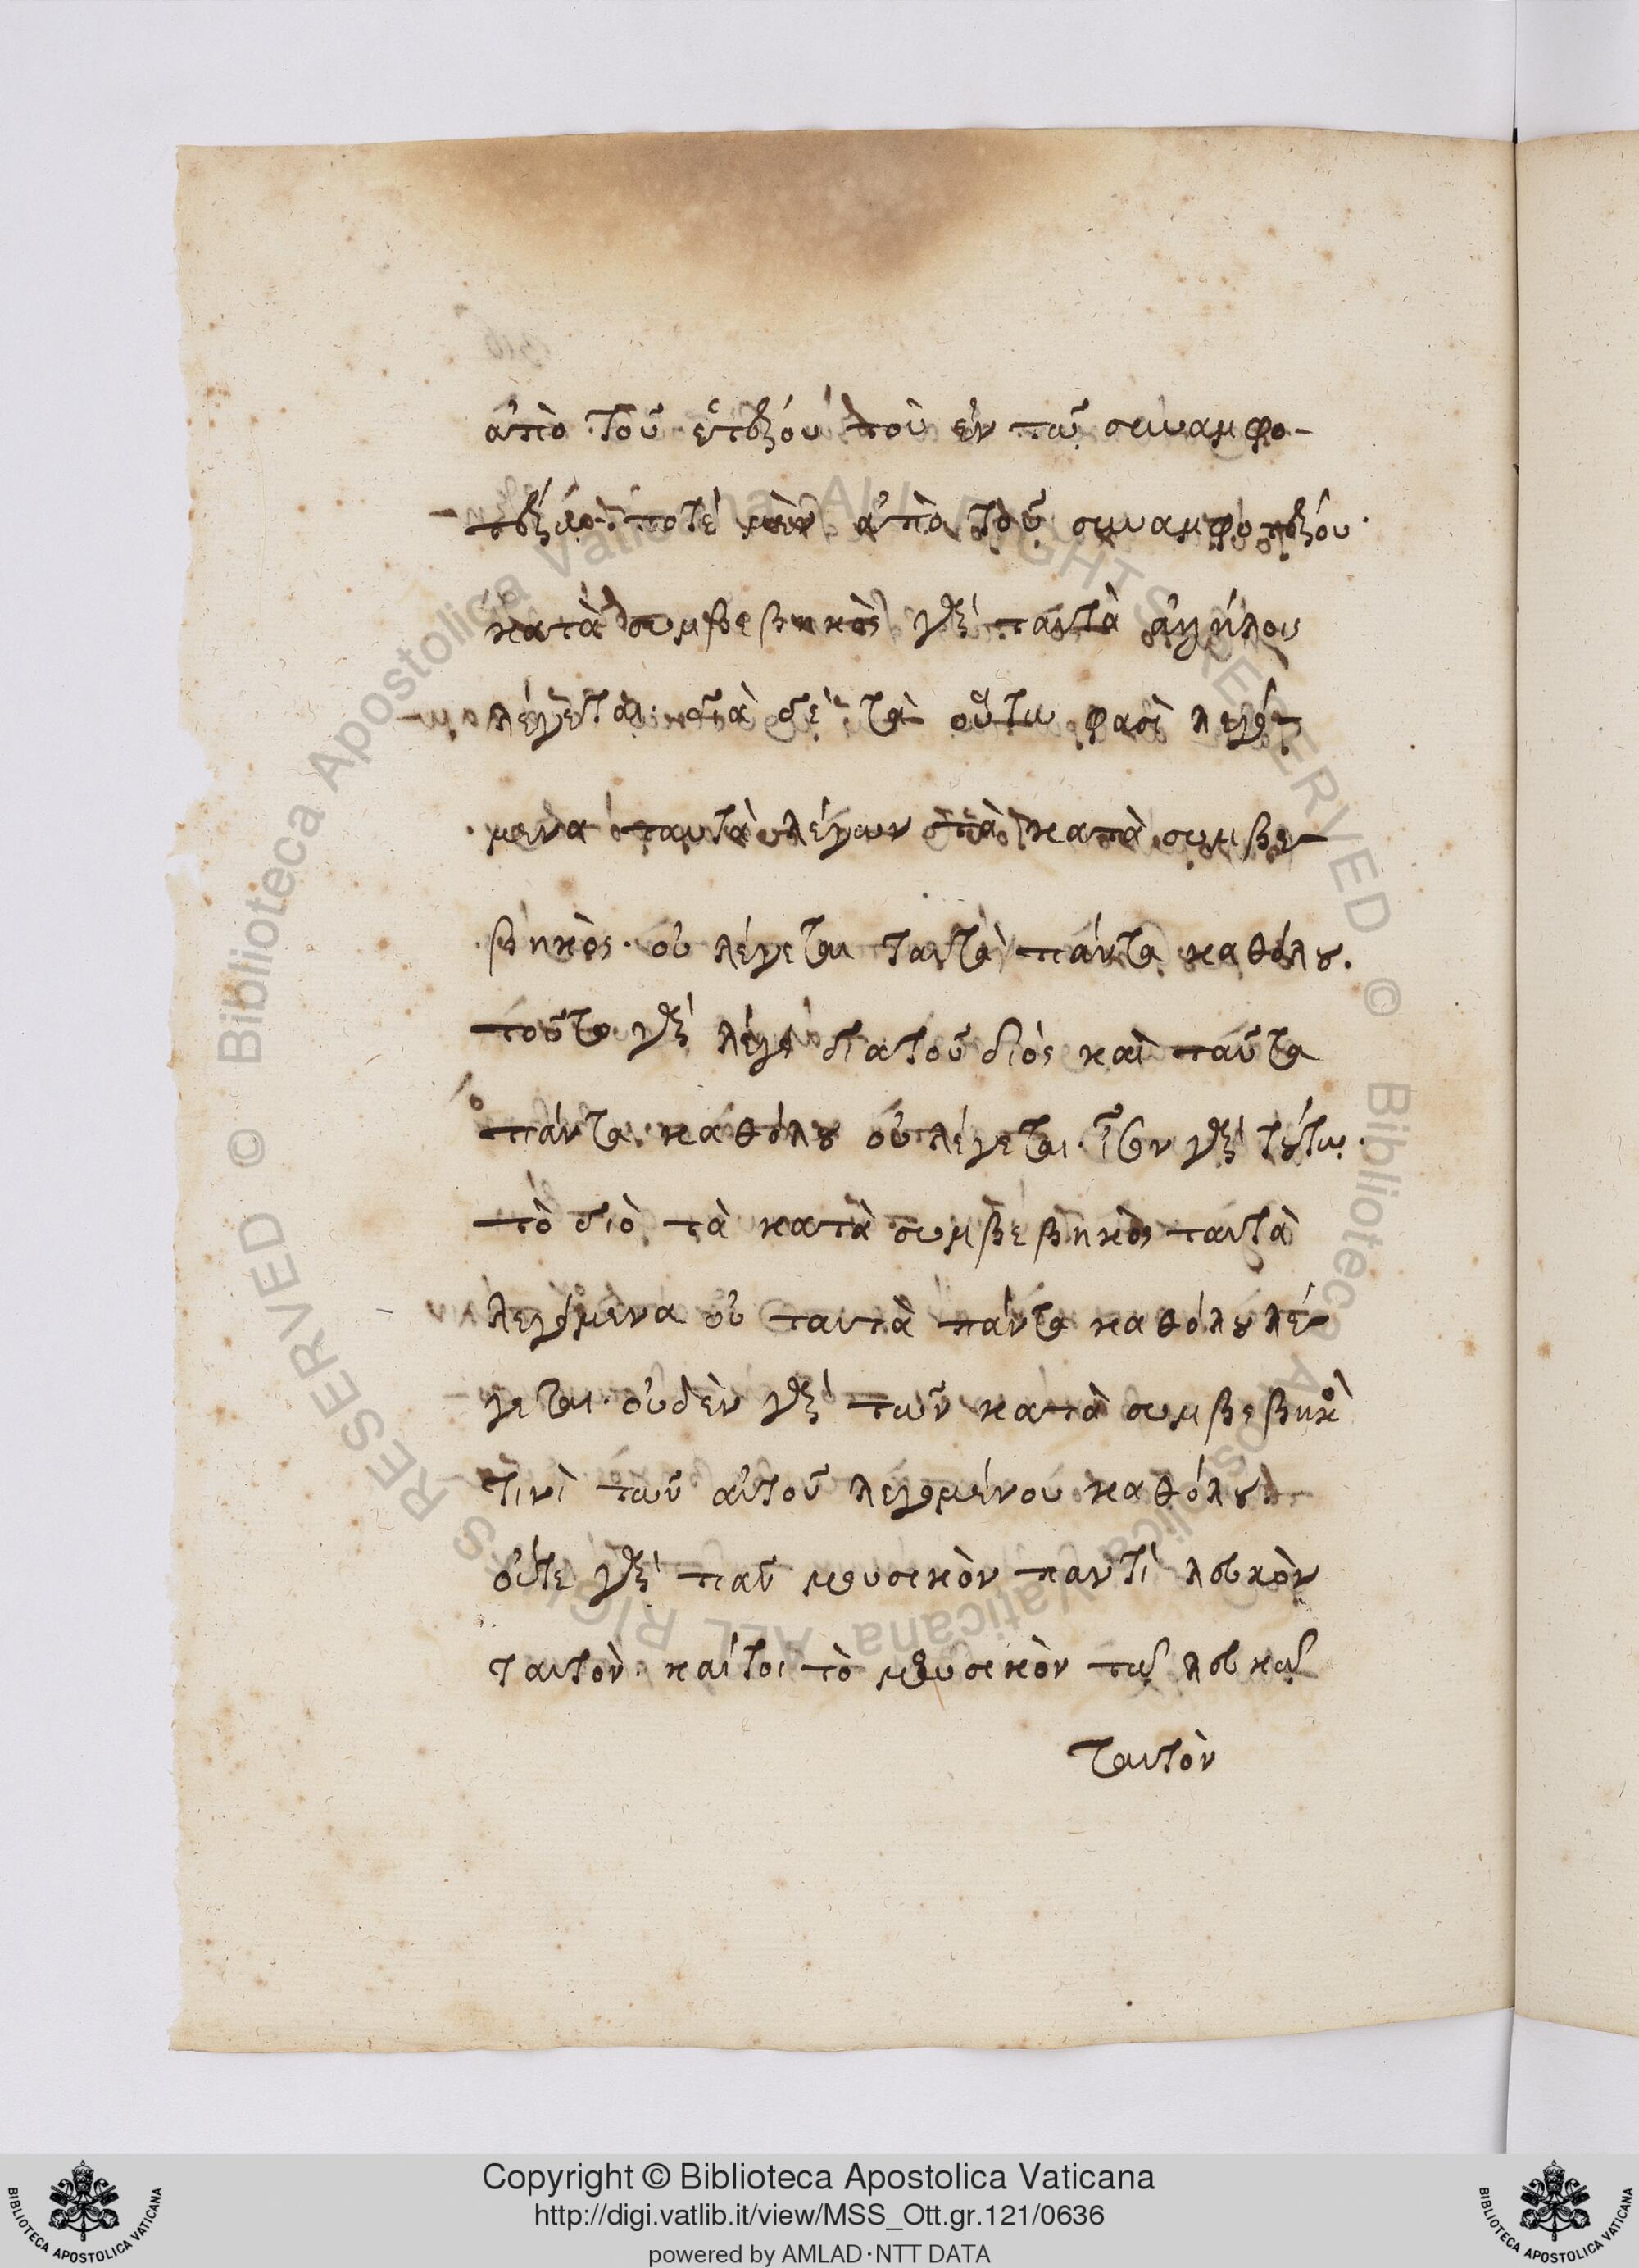 ἀπὸ τοῦ ἑτέρου τοῦ ἐν τῷ συναμφο-
τέρῳ· ποτὲ μὲν ἀπὸ τοῦ συναμφοτέρου·
κατὰ συμβεβηκὸς γὰρ ταυτὰ ἀλλήλοις
λέγεται· τὰ δὲ οὕτω φασὶ λεγό-
μενα ταυτὰ λέγων τὰ κατὰ συμβε-
βηκὸς· οὐ λέγεται ταυτὰ πάντα καθόλου.
τοῦτο γὰρ λέγει διὰ τοῦ διὸς καὶ ταῦτα
πάντα καθόλου οὐ λέγεται· ἴσον γὰρ τούτῳ
τὸ διὸ τὰ κατὰ συμβεβηκὸς ταυτὰ
λεγόμενα οὐ ταυτὰ πάντα καθόλου λέ-
γεται· οὐδὲν γὰρ τῶν κατὰ συμβεβηκὸ
τινὶ αὐτοῦ λεγομένου καθόλου.
οὔτε γὰρ πᾶν μουσικὸν παντὶ λευκὸν
ταυτὸν· καίτοι τὸ μουσικὸν τῷ λευκῷ
ταυτὸν
Copyright © Biblioteca Apostolica Vaticana
http://digi.vatlib.it/view/MSS_Ott.gr.121/0636
powered by AMLAD·NTT DATA
BIBLIOTECA APOSTOLICA VATICANA
BIBLIOTECA APOSTOLICA VATICANA
© Biblioteca Apostolica Vaticana ALL RIGHTS RESERVED
© Biblioteca Apostolica Vaticana ALL RIGHTS RESERVED